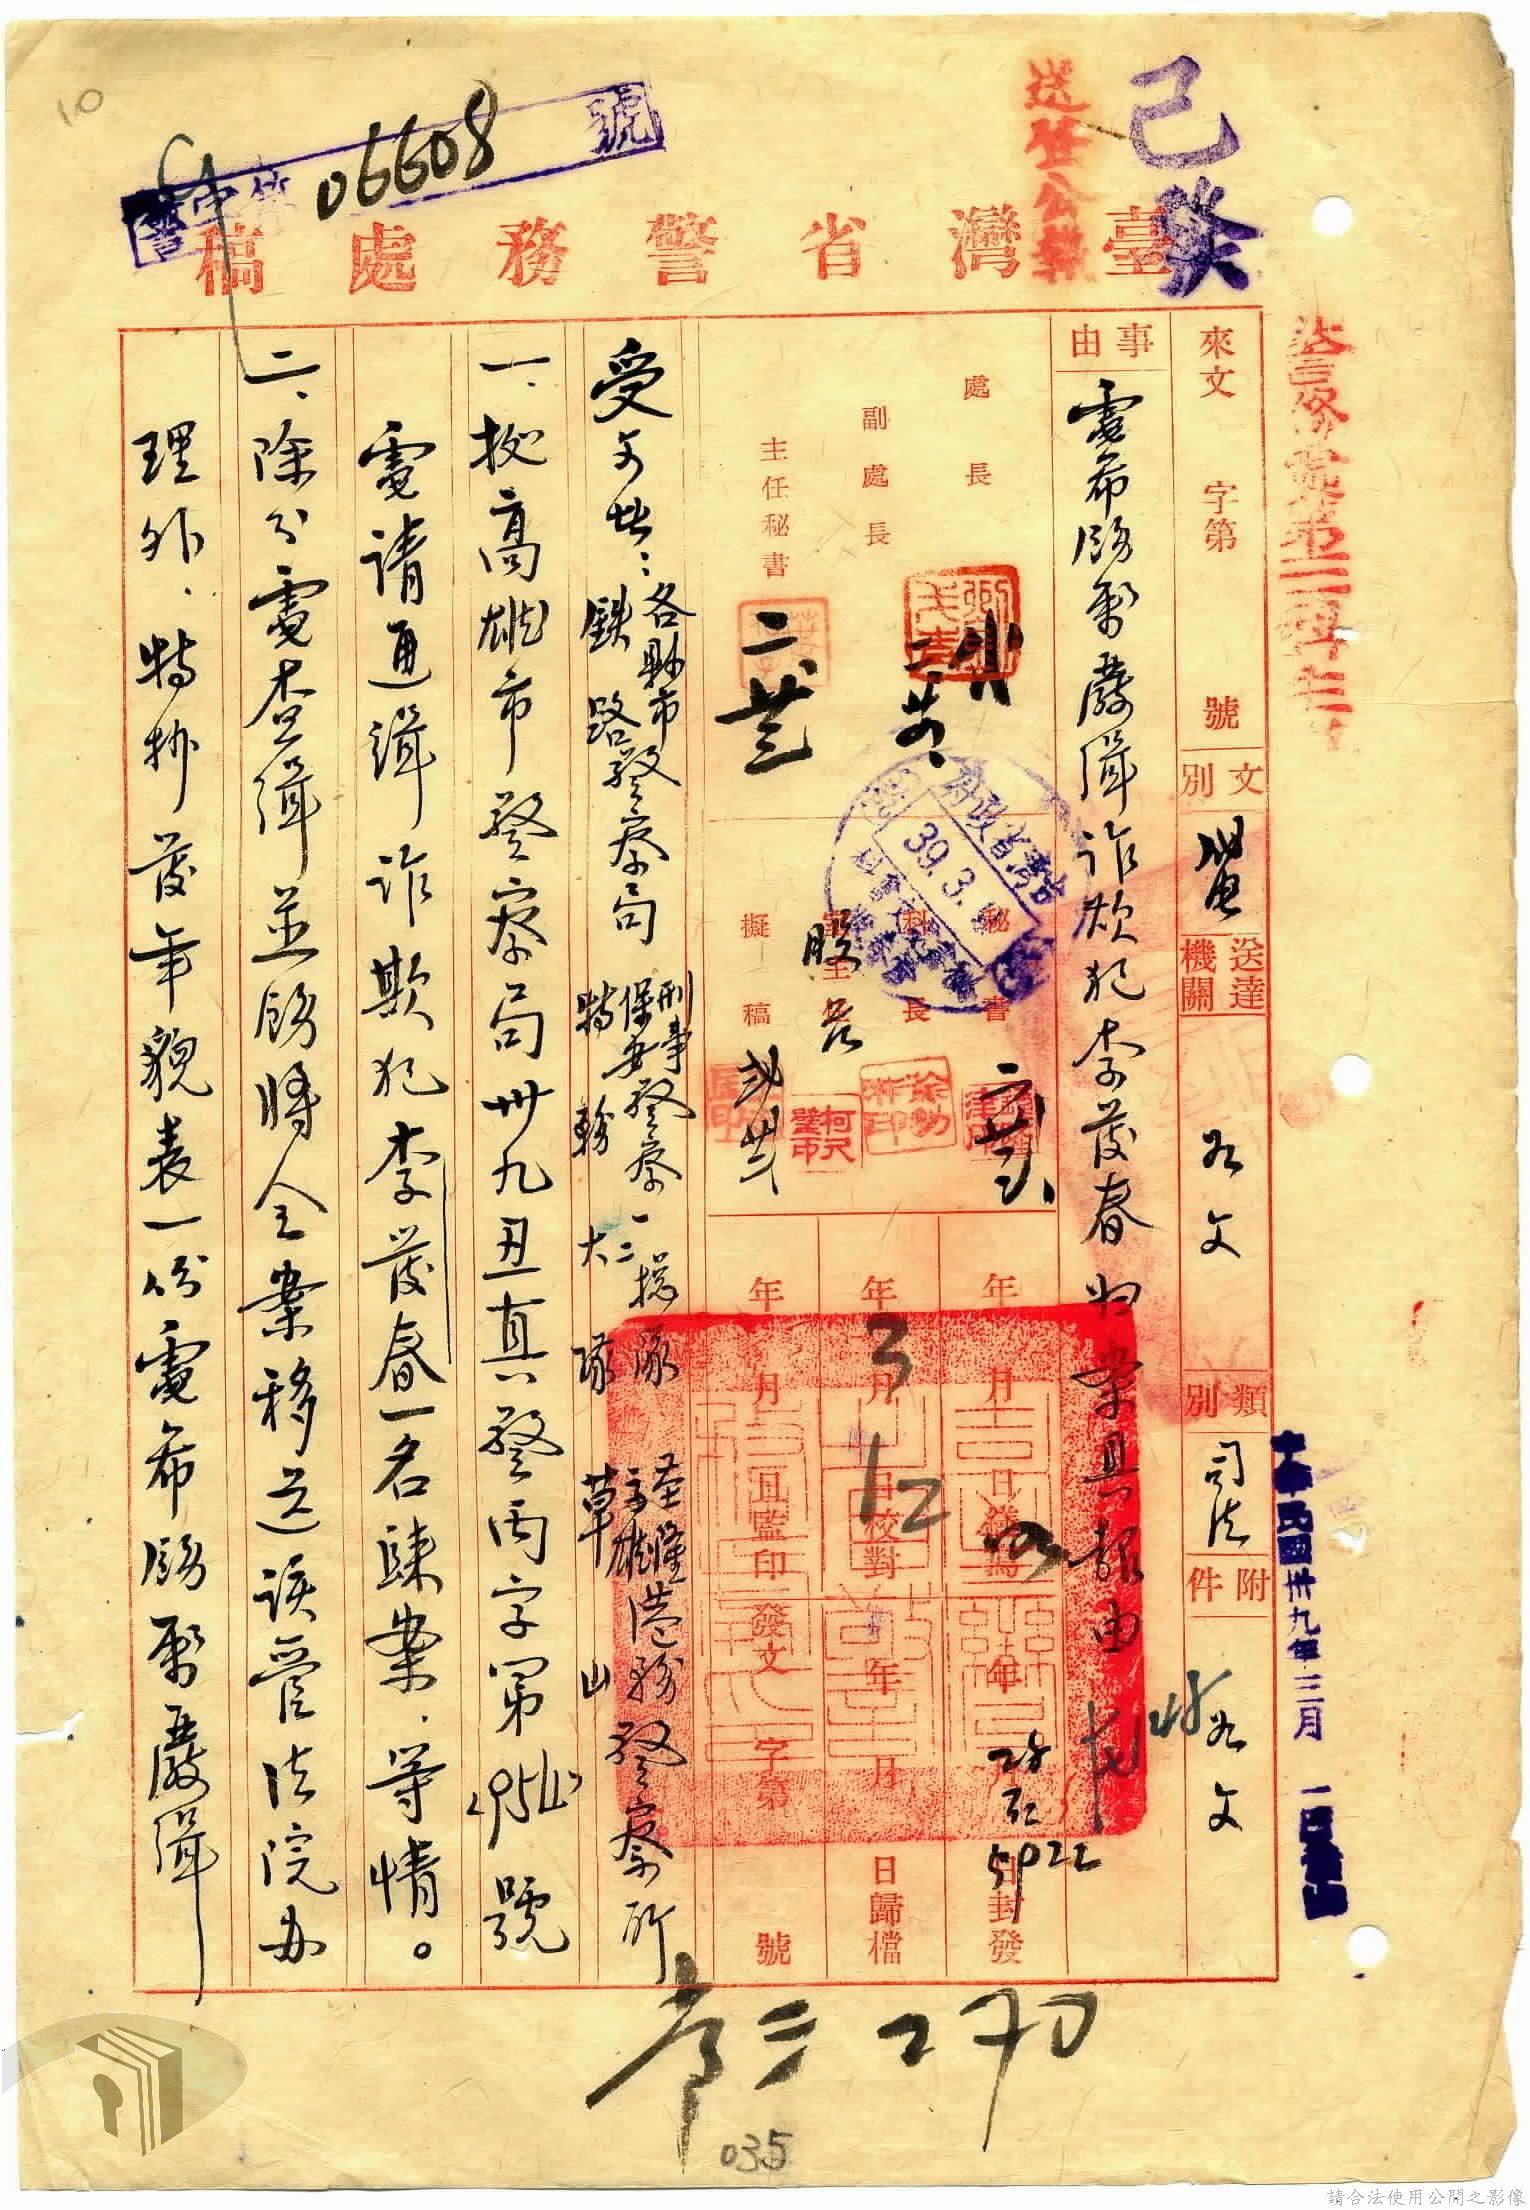 10
第06608號
已發
送登公報
臺灣省警務處稿
來文 字第 號
文別
代電
送達機關
如文
類別
司法
附件
如文
事由
電希飭屬嚴緝詐欺犯李發春归案具報由
處長
副處長
主任秘書
秘書
科長
股長
擬稿
39.3.
年 月 日繕寫
年 月 日校對
年 月 日監印
年 月 日封發
年 月 日歸檔
發文 字第 號
3
12
受文者：各縣市 鉄路 警察局 刑事 保安警察一二總隊 特務大隊 基隆 高雄 港務警察所 草山
一、据高雄市警察局卅九丑真警丙字第 號
電請通緝詐欺犯李發春一名歸案，等情。
二、除分電查緝並飭將全案移送該管法院办
理外，特抄發年貌表一份電希飭屬嚴緝
中華民國卅九年三月一日
270
035
請合法使用公開之影像